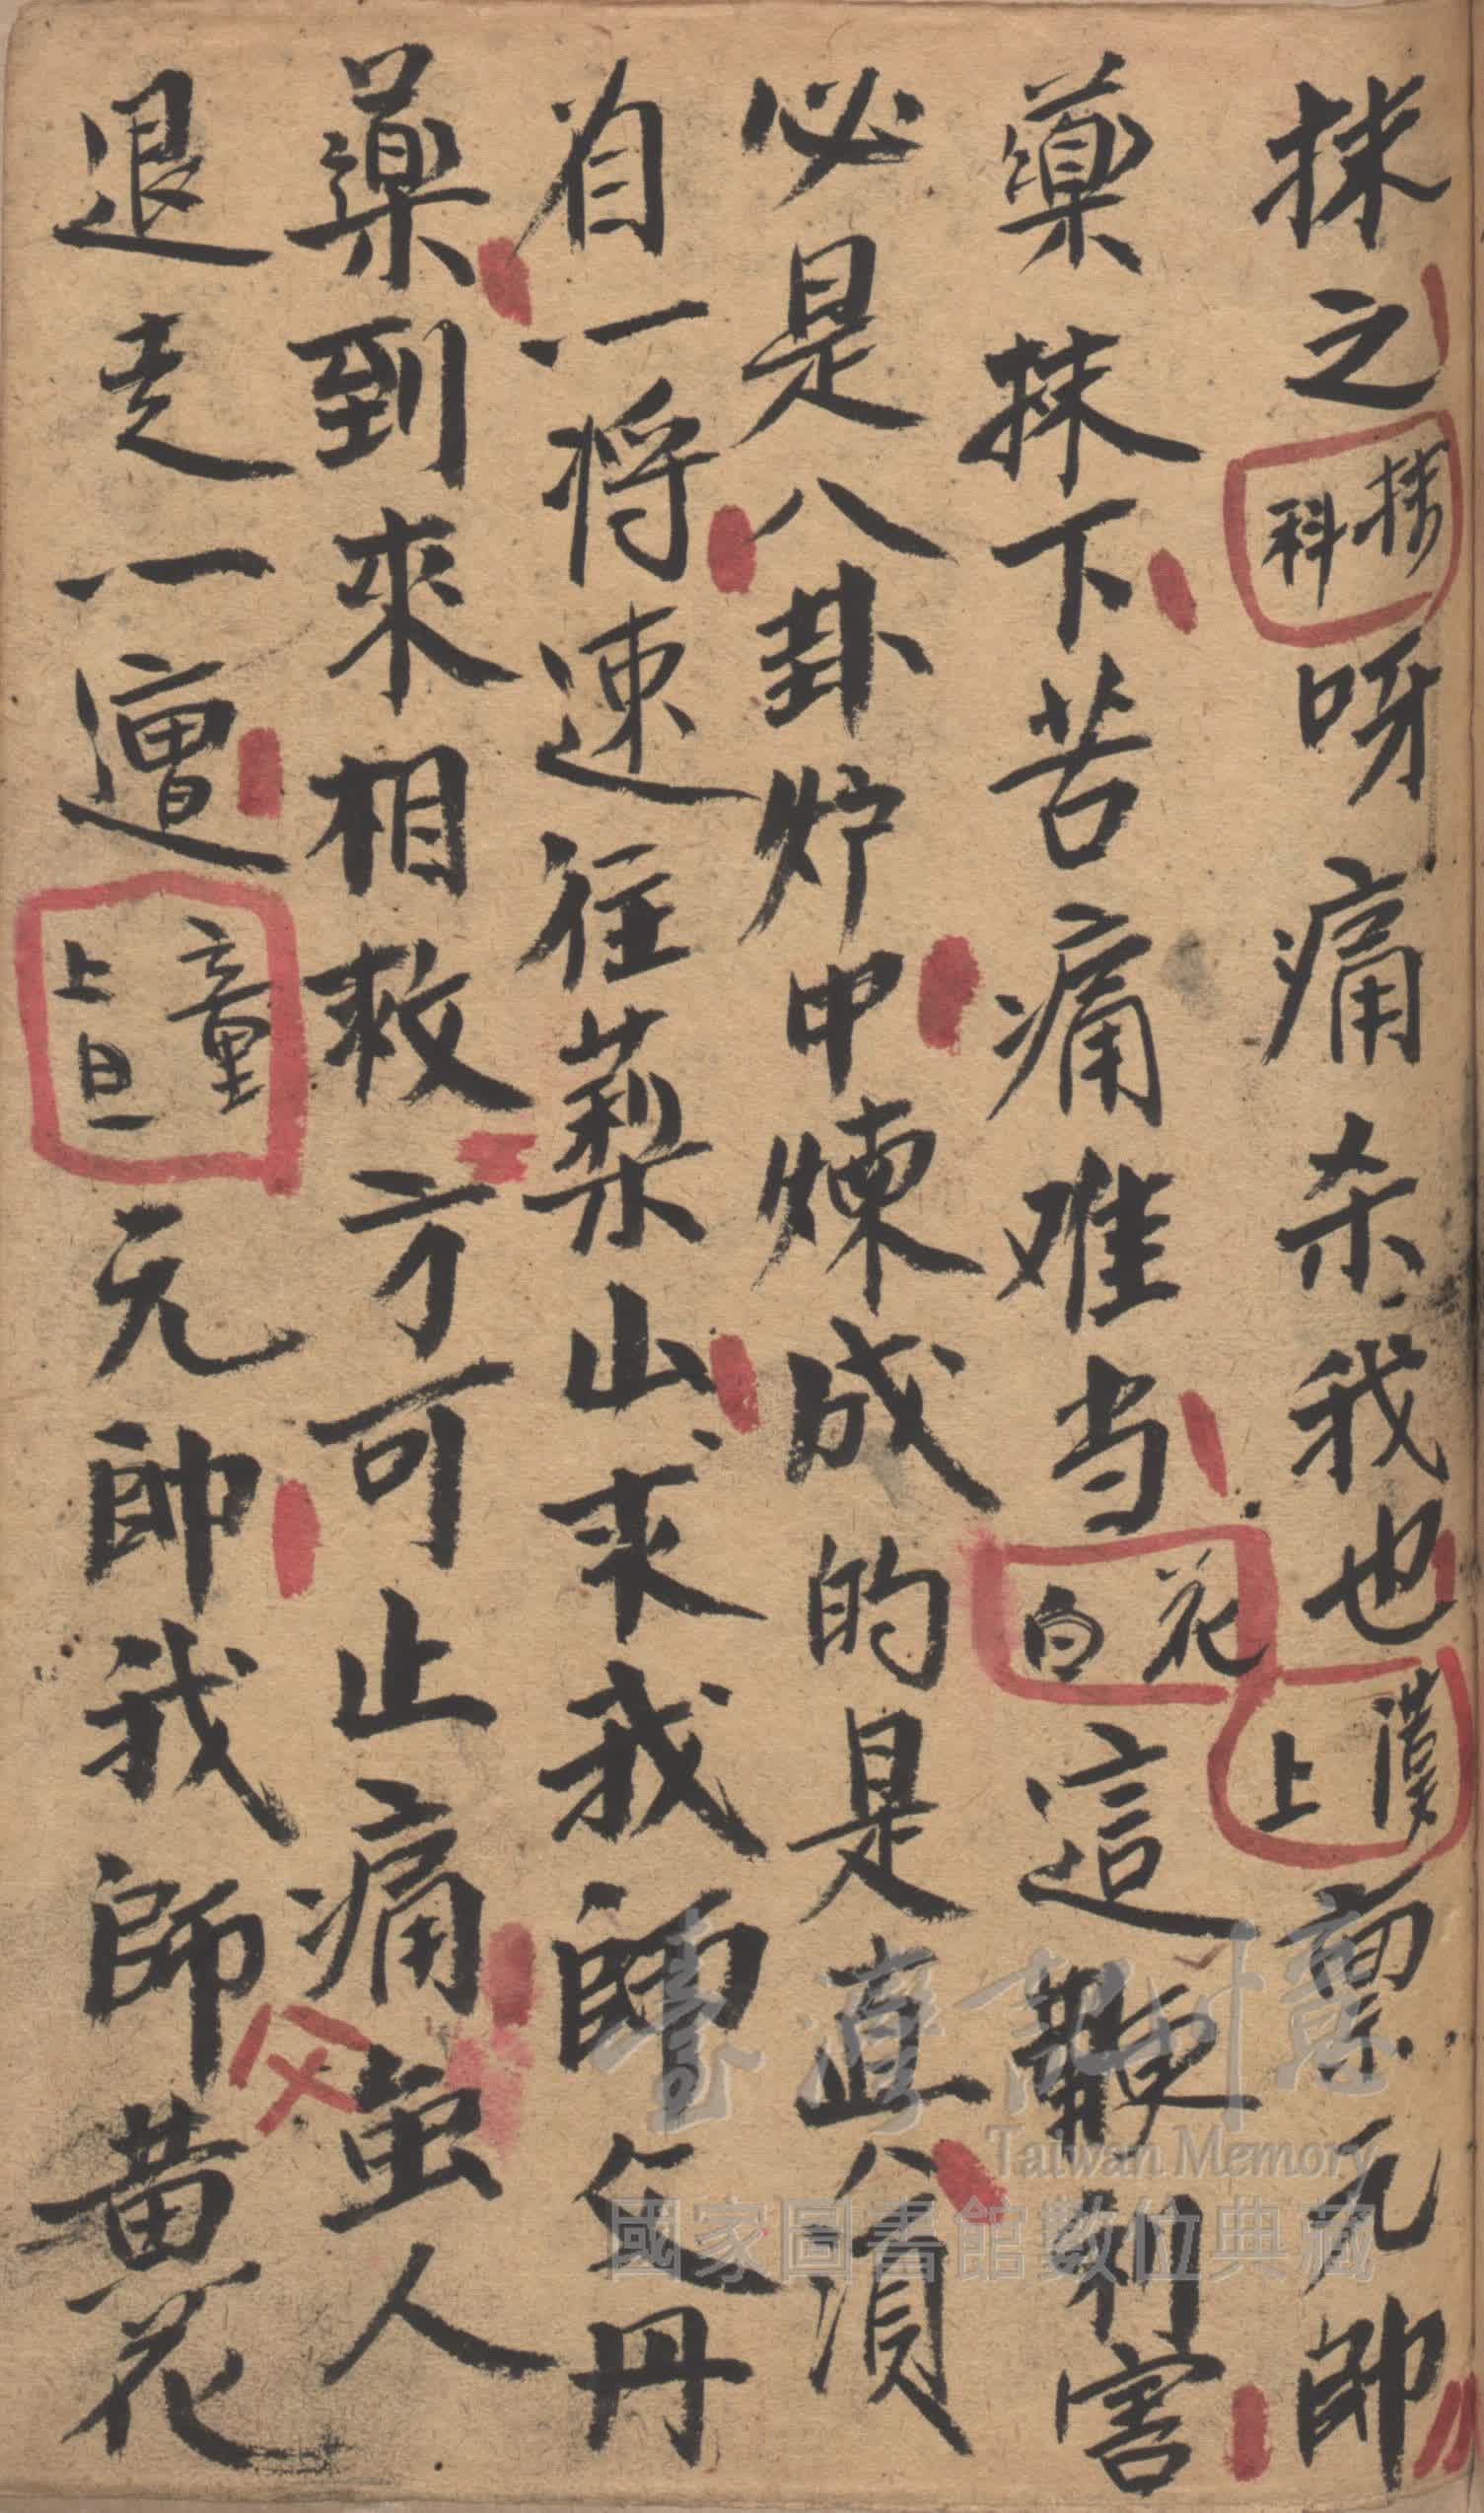 抹之抹科呀痛杀我也漢上禀元帥
藥抹下苦痛难当花白這鞭利害
必是八卦炉中煉成的是真八須
有一将速往梨山求我師父丹
藥到來相救方可止痛虽人
退走一遭童上旦元帥我師父黄花
臺灣記憶
Taiwan Memory
國家圖書館數位典藏